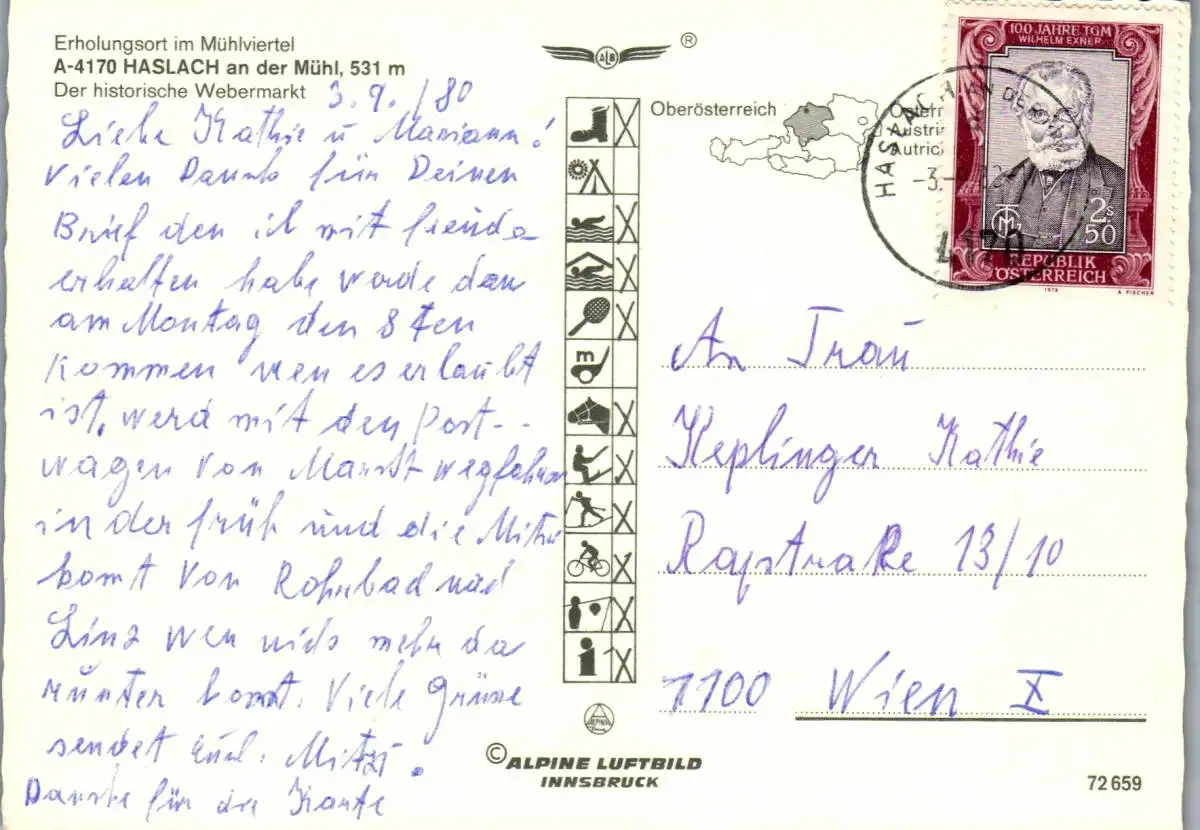 Erholungsort im Mühlviertel
A-4170 HASLACH an der Mühl, 531 m
Der historische Webermarkt
3.9./80
Liebe Kathie u Mariann!
Vielen Dank für Deinen
Brief den ich mit freude
erhalten habe werde dan
am Montag den 8ten
Kommen wen es erlaubt
ist, werd mit den Post--
wagen von Markt wegfahren
in der früh und die Mitzi
komt von Rohrbad nad
Linz wen nichs mehr da
runter komt. Viele Grüsse
sendet euch. Mitzi.
Danke für die Karte
ALB
®
Oberösterreich
Österr
Austri
Autric
m
i
ALPINA
© ALPINE LUFTBILD
INNSBRUCK
100 JAHRE TGM
WILHELM EXNER
TGM
2s
50
REPUBLIK
ÖSTERREICH
1979
A. FISCHER
HASLACH AN DER
-3.
4170
An Frau
Keplinger Kathie
Rapstraße 13/10
1100 Wien X
72659